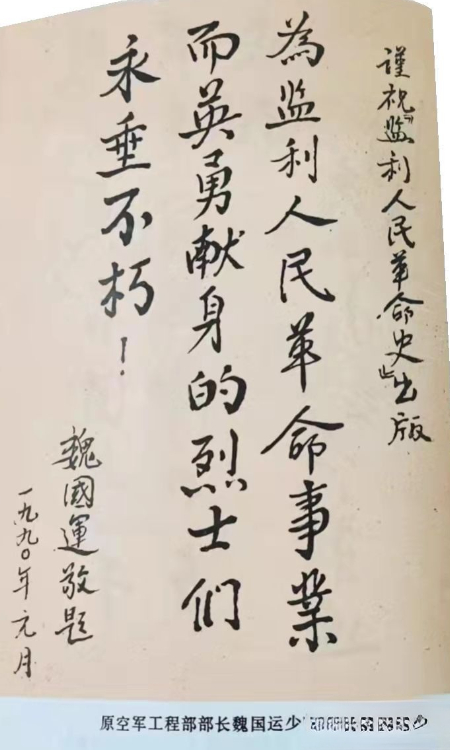 谨祝《监利人民革命史》出版
为监利人民革命事业
而英勇献身的烈士们
永垂不朽！
魏國運敬题
一九九〇年元月
原空军工程部部长魏国运少